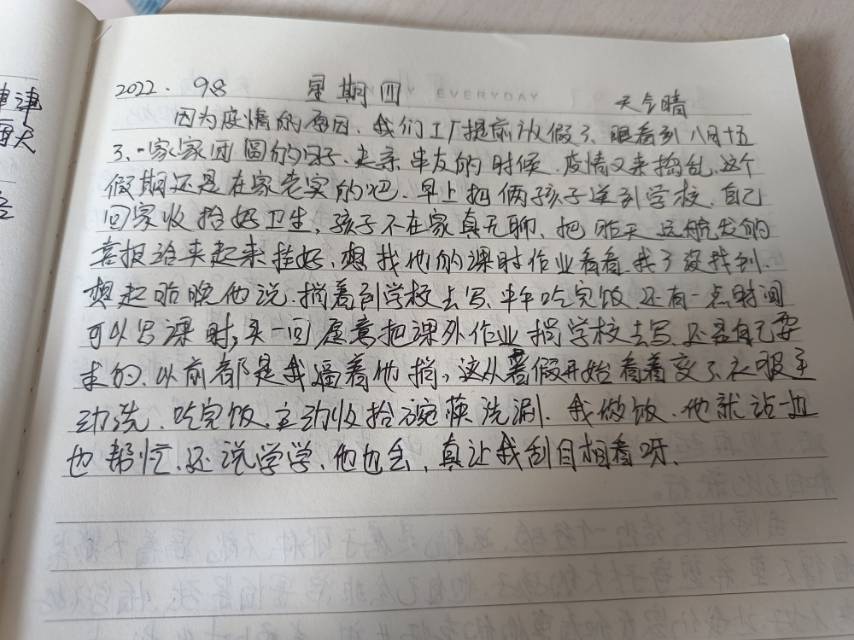 2022.9.8 星期四 EVERYDAY 天气晴
因为疫情的原因、我们工厂提前放假了、眼看到八月十五
了、一家家团圆的日子、走亲串友的时候、疫情又来捣乱、这个
假期还是在家老实的吧、早上把俩孩子送到学校、自己
回家收拾好卫生、孩子不在家真无聊、把昨天远航发的
喜报给夹起来挂好、想找他的课时作业看看、找了没找到、
想起昨晚他说、捎着到学校去写、中午吃完饭、还有一点时间
可以写课时、头一回愿意把课外作业捎学校去写、还是自己要
求的、以前都是我逼着他捎、这从暑假开始看着变了、衣服主
动洗、吃完饭、主动收拾碗筷洗涮、我做饭、他就站一边
也帮忙、还说学学、他也会、真让我刮目相看呀、